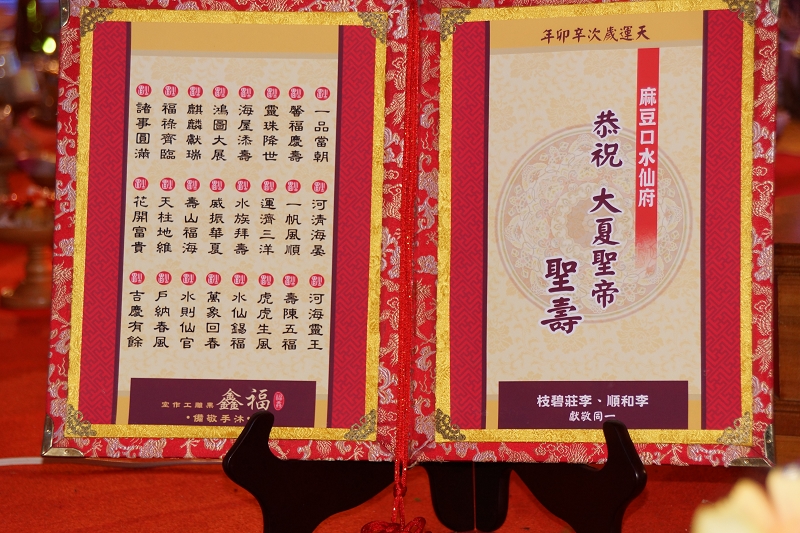 天運歲次辛卯年
麻豆口水仙府
恭祝 大夏聖帝
聖壽
李和順、李莊碧枝
一同敬獻
一品當朝
馨福慶壽
靈珠降世
海屋添壽
鴻圖大展
麒麟獻瑞
福祿齊臨
諸事圓滿
河清海晏
一帆風順
運濟三洋
水族拜壽
威振華夏
壽山福海
天柱地維
花開富貴
河海靈王
壽陳五福
虎虎生風
水仙錫福
萬象回春
水則仙官
戶納春風
吉慶有餘
福鑫果雕工作室
•沐手敬備•